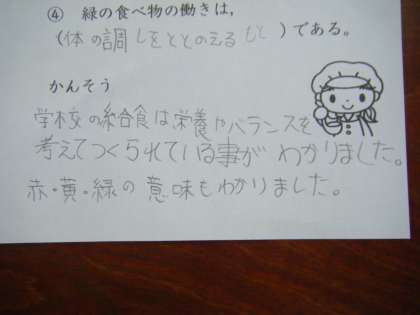 ④ 緑の食べ物の働きは,
(体の調しをととのえること)である。
かんそう
学校の給食は栄養やバランスを
考えてつくられている事がわかりました。
赤・黄・緑の意味もわかりました。